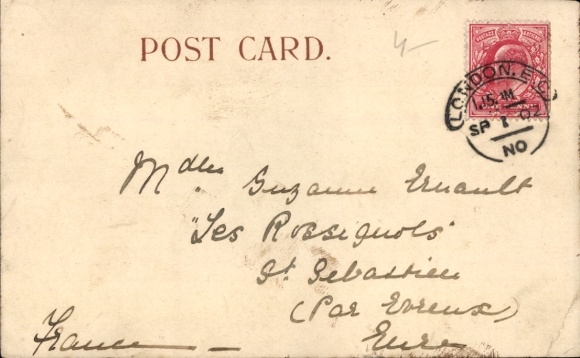 POST CARD.
4-
LONDON. E.C.
SP 1 02
NO
Mdlle Suzanne Ernault
"Les Rossignols"
St Sebastien
(Par Evreux)
France — Eure